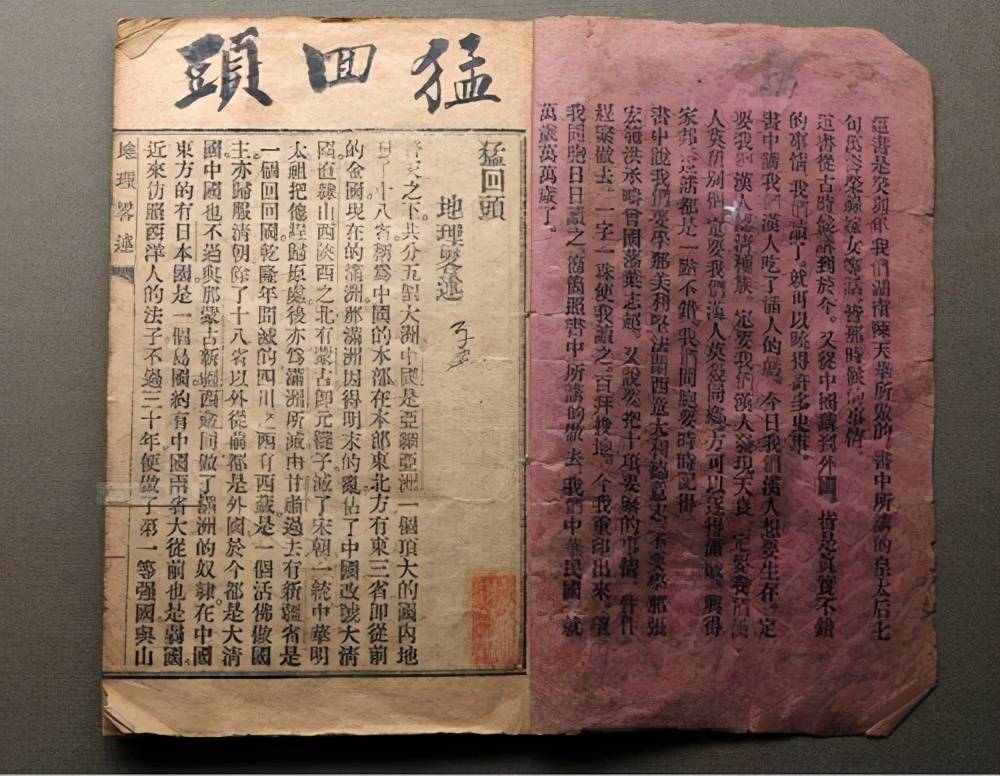 這書是癸卯年我們湖南陳天華所做的書中所講的皇太后七
旬萬壽榮祿嫁女等話皆那時候的事情
這書從古時候說到於今。又從中國講到外國。皆是真實不錯
的事情我們讀了。就可以曉得許多史事。
書中講我們漢人吃了滿人的虧。今日我們漢人想要生存。定
要我們漢人認清種族。定要我們漢人發現天良。定要我們漢
人莫分別個定要我們漢人莫殺同鄉方可以逐得滿賊。興得
家邦這話都是一點不錯我們同胞要時時記得
書中說我們要學那美利堅法蘭西意大利德意志不要學那張
宏範洪承疇曾國藩葉志超。又說要把十項要緊的事情。件件
趕緊做去。一字一珠使我讀之。百拜稽地。今我重印出來。望
我同胞日日讀之。簡簡照書中所講的做去我們中華民國就
萬歲萬萬歲了。
猛回頭
猛回頭
地理畧述
普天之下。共分五個大洲中國是亞細亞洲一個頂大的國內地
有十八省稱爲中國的本部在本部東北方有東三省即從前
的金國現在的滿洲那滿洲因得明末的亂佔了中國改號大清
國直隸山西陝西之北有蒙古即元韃子滅了宋朝一統中華明
太祖把他趕歸原處後亦爲滿洲所滅由甘肅過去有新疆省是
一個回回國乾隆年間滅的四川之西有西藏是一個活佛做國
主亦歸服清朝除了十八省以外從前都是外國於今都是大清
國中國也不過與那蒙古新疆西藏同做了滿洲的奴隷。在中國
東方的有日本國是一個島國約有中國兩省大從前也是弱國
近來仿照西洋人的法子不過三十年便做了第一等强國與山
地理畧述